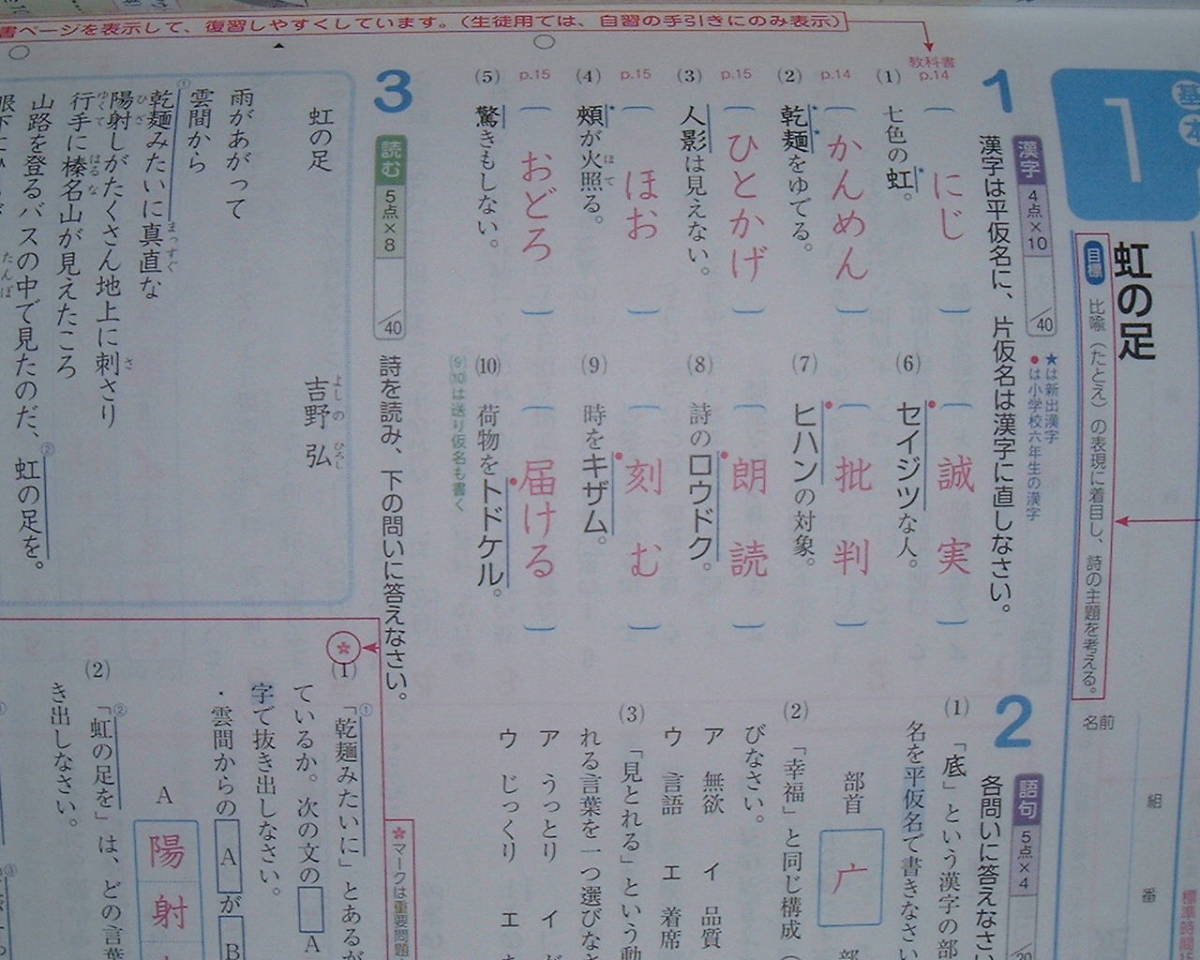 書ページを表示して、復習しやすくしています。（生徒用では、自習の手引きにのみ表示）
基本
1
虹の足
目標 比喩（たとえ）の表現に着目し、詩の主題を考える。
名前
組
番
1 漢字 4点×10 /40
漢字は平仮名に、片仮名は漢字に直しなさい。
★は新出漢字
●は小学校六年生の漢字
教科書
p.14
(1) 七色の虹。
にじ
p.14
(2) 乾麺をゆでる。
かんめん
p.15
(3) 人影は見えない。
ひとかげ
p.15
(4) 頰が火照る。
ほて
ほお
p.15
(5) 驚きもしない。
おどろ
(6) セイジツな人。
誠実
(7) ヒハンの対象。
批判
(8) 詩のロウドク。
朗読
(9) 時をキザム。
刻む
(10) 荷物をトドケル。
届ける
(9)(10)は送り仮名も書く
2 語句 5点×4 /20
各問いに答えなさい
(1) 「底」という漢字の部
名を平仮名で書きなさい
部首
广
部
(2) 「幸福」と同じ構成
びなさい。
ア 無欲 イ 品質
ウ 言語 エ 着席
(3) 「見とれる」という動
れる言葉を一つ選びな
ア うっとり イ
ウ じっくり エ
3 読む 5点×8 /40
詩を読み、下の問いに答えなさい。
虹の足
吉野 弘
よしの ひろし
雨があがって
雲間から
①乾麺みたいに真直な
まっすぐ
陽射しがたくさん地上に刺さり
ひざ さ
行手に榛名山が見えたころ
ゆくて はるな
山路を登るバスの中で見たのだ、②虹の足を。
たんぼ
(1) ①「乾麺みたいに」とあるが
ているか。次の文の A
字で抜き出しなさい。
・雲間からの A が B
A
陽射
(2) ②「虹の足を」は、どの言葉
き出しなさい。
＊マークは重要問題